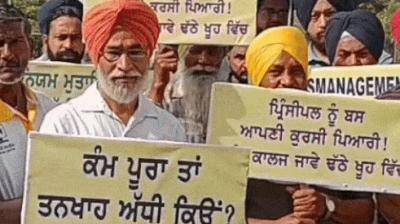 ਕੁਰਸੀ ਪਿਆਰੀ!
ਜਾਵੇ ਢੱਠੇ ਖੂਹ ਵਿੱਚ
SMANAGEMEN
ਪ੍ਰਿੰਸੀਪਲ ਨੂੰ ਬਸ
ਆਪਣੀ ਕੁਰਸੀ ਪਿਆਰੀ!
ਕਾਲਜ ਜਾਵੇ ਢੱਠੇ ਖੂਹ ਵਿੱਚ
ਕੰਮ ਪੂਰਾ ਤਾਂ
ਤਨਖਾਹ ਅੱਧੀ ਕਿਉਂ?